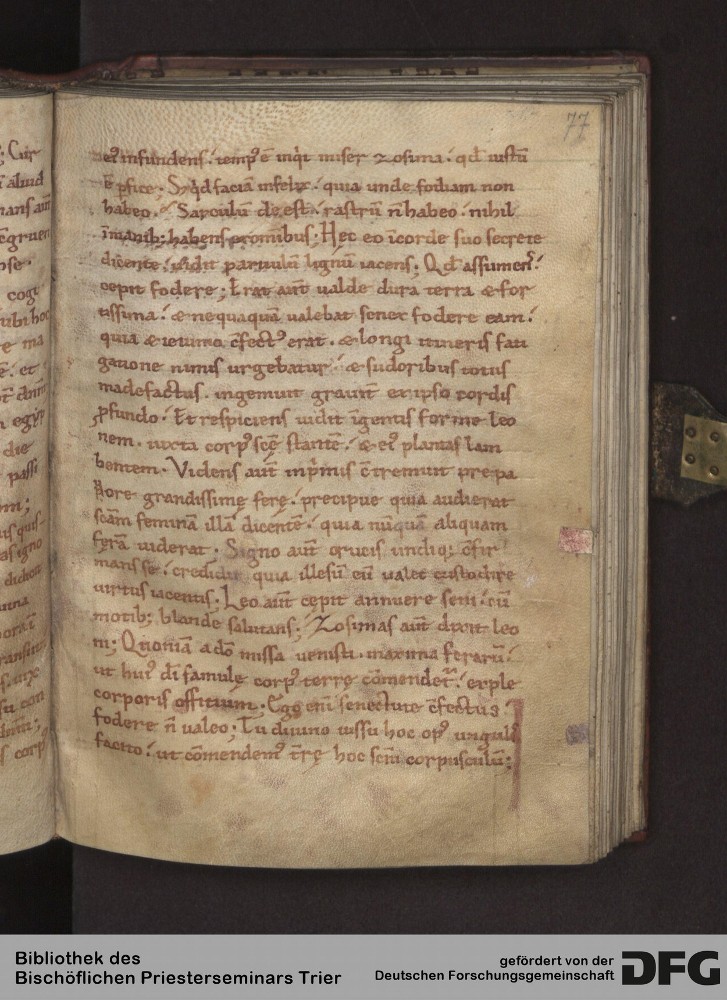 77
ei᷒ infundens. temp᷒ ē inq̇t miser zosima. qđ iustū
ē ꝑfice. Sꝫ qͥd faciā infelix. quia unde fodiam non
habeo. Sarculum de est. rastrū n̄ habeo. nihil
īmanib; habens promībus. Hec eo īcorde suo secrete
dicente. uidit paruulū lignū iacens; Qđ assumens.
cepit fodere; Erat aūt ualde dura terra & for
tissima. & nequaquā ualebat senex fodere eam.
quia & ieiunio c̄fect᷒ erat. & longi itineris fati
gatione nimis urgebatur. & sudoribus totus
madefactus. ingemuit grauit̄ et ipso cordis
ꝓfundo. Et respiciens uidit īgentis formę leo
nem. iuxta corp᷒ scę̄ stantē. & ei᷒ plantas lam
bentem. Videns aūt inp̄mis c̄tremuit pre pa
uore grandissimę ferę. precipue quia audierat
scām feminā illā dicentē. quia nūquā aliquam
ferā uiderat. Signo aūt crucis undiq; c̄fir
mans se. credidit quia illesū eū ualet custodire
uirtus iacentis; Leo aūt cepit annuere seni. cū
motib; blande salutans; Zosimas aūt dixit leo
ni; Quoniā a dō missa uenisti. maxima ferarū.
ut hui᷒ dī famulę corp᷒ terrę cōmendet᷑. exple
corporis offitium. Ego enī senectute c̄fectus
fodere n̄ ualeo; Tu diuino iussu hoc op᷒ ungulis
facito. ut cōmendem᷒ t̄rę hoc scm̄ corpusculū;
Bibliothek des
Bischöflichen Priesterseminars Trier
gefördert von der
Deutschen Forschungsgemeinschaft
DFG